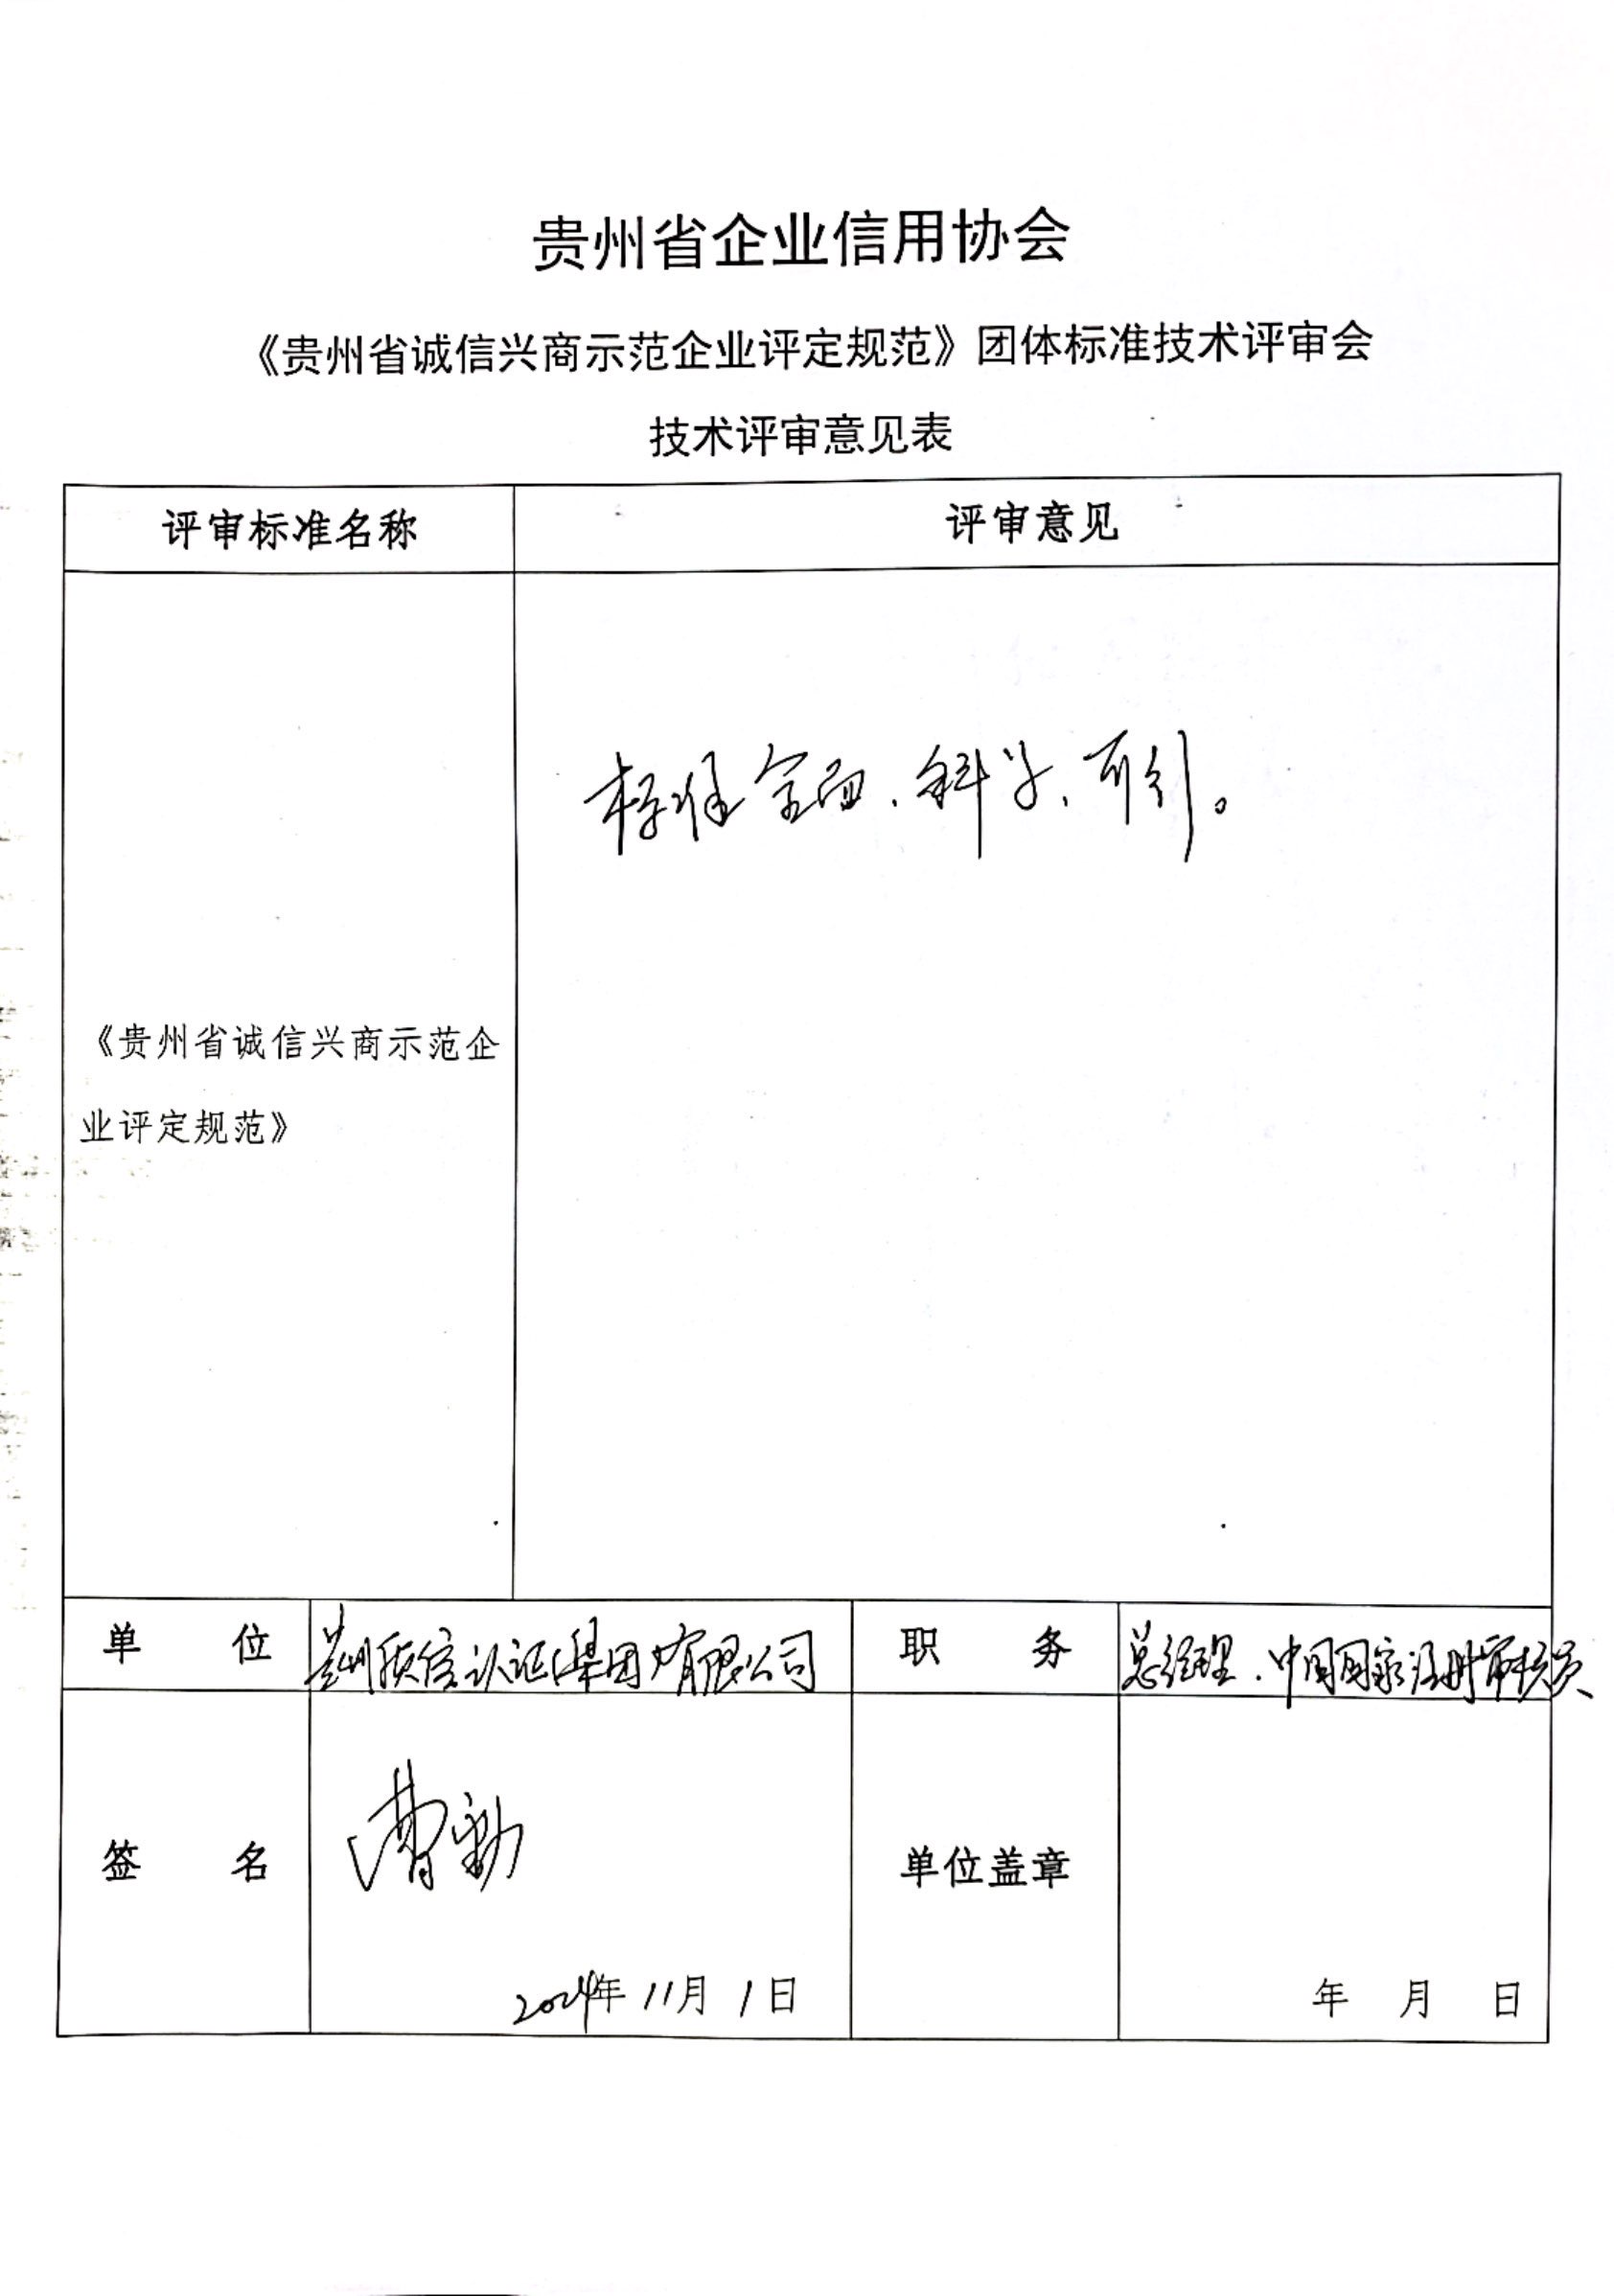 贵州省企业信用协会
《贵州省诚信兴商示范企业评定规范》团体标准技术评审会
技术评审意见表
评审标准名称 评审意见
标准全面、科学、可行。
《贵州省诚信兴商示范企
业评定规范》
单 位 贵州联信认证(集团)有限公司 职 务 总经理、中国国家注册审核员
签 名 曹勤 单位盖章
2024年 11月 1日 年 月 日